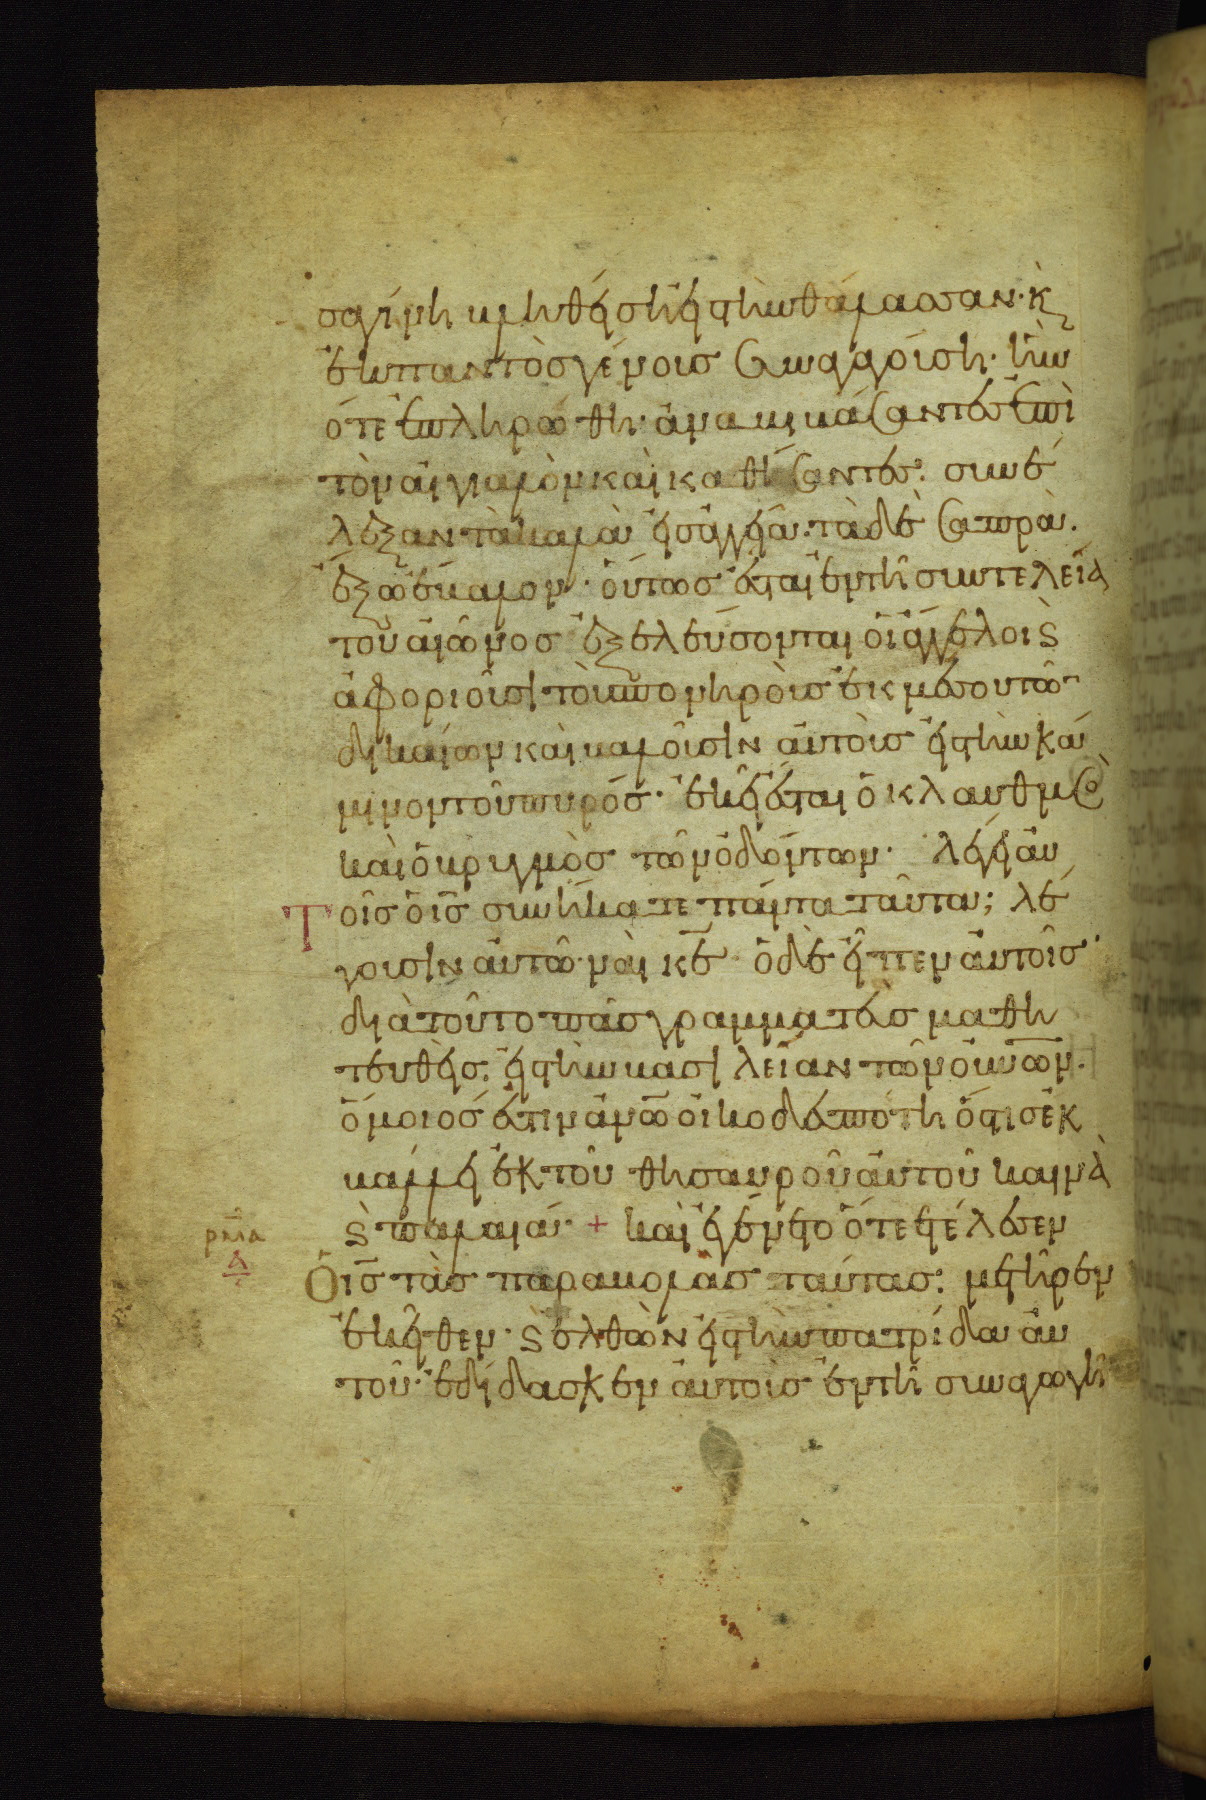 σαγήνη βληθείση εἰς τὴν θάλασσαν· κ
ἐκ παντὸς γένους συναγούση· ἣν
ὅτε ἐπληρώθη· ἀναβιβάσαντες ἐπὶ
τὸν αἰγιαλὸν καὶ καθίσαντες· συνέ
λεξαν τὰ καλὰ εἰς ἀγγεῖα· τὰ δὲ σαπρὰ·
ἔξω ἔβαλον· οὕτως ἔσται ἐν τῆ συντελεία
τοῦ αἰῶνος ἐξελεύσονται οἱ ἄγγελοι ϗ
ἀφοριοῦσι τοὺς πονηροὺς ἐκ μέσου τῶν
δικαίων καὶ βαλοῦσιν αὐτοὺς εἰς τὴν κά
μινον τοῦ πυρός· ἐκεῖ ἔσται ὁ κλαυθμὸς
καὶ ὁ βρυγμὸς τῶν ὀδόντων· λέγει αὐ
τοῖς ὁ ις συνήκατε πάντα ταῦτα; λέ
γουσιν αὐτῶ· ναὶ κε ὁ δὲ εἶπεν αὐτοῖς·
διὰ τοῦτο πᾶς γραμματεὺς μαθη
τευθεὶς εἰς τὴν βασιλείαν τῶν ουνων·
ὅμοιός ἐστιν ανω οἰκοδεσπότη ὅστις ἐκ
βάλλει ἐκ τοῦ θησαυροῦ αὐτοῦ καινὰ
ϗ παλαιά· + καὶ ἐγένετο ὅτε ἐτέλεσεν
ὁ ις τὰς παραβολὰς ταύτας· μετῆρεν
ἐκεῖθεν· ϗ ἐλθὼν εἰς τὴν πατρίδα αὐ
τοῦ· ἐδίδασκεν αὐτοὺς ἐν τῆ συναγωγῆ
ρμα
Α